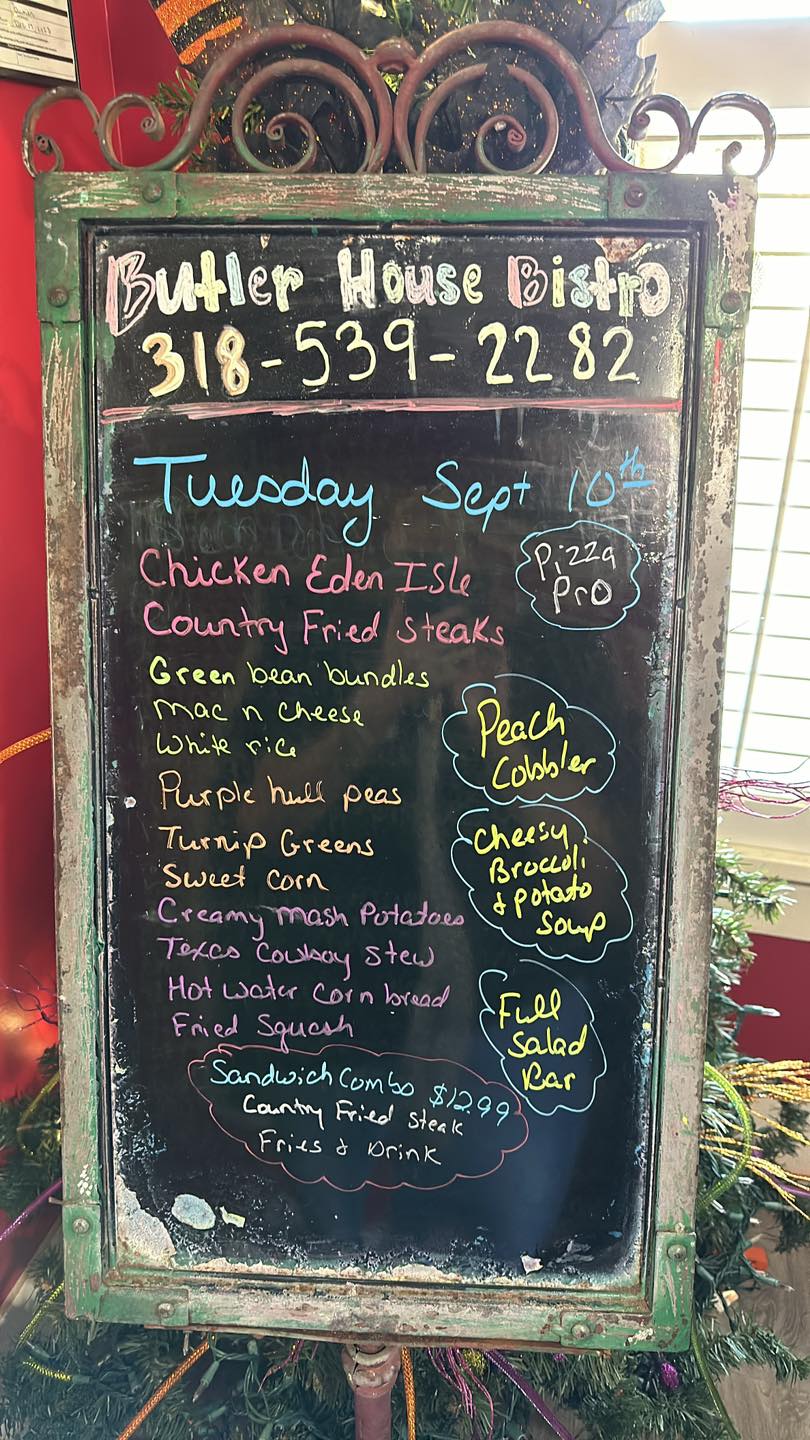 Butler House Bistro
318-539-2282
Tuesday Sept 10th
Chicken Eden Isle
Country Fried Steaks
Pizza
Pro
Green bean bundles
Mac n Cheese
White rice
Peach
Cobbler
Purple hull peas
Turnip Greens
Sweet Corn
Cheesy
Broccoli
& potato
Soup
Creamy Mash Potatoes
Texas Cowboy Stew
Hot Water Corn bread
Fried Squash
Full
Salad
Bar
Sandwich Combo $12.99
Country Fried Steak
Fries & Drink